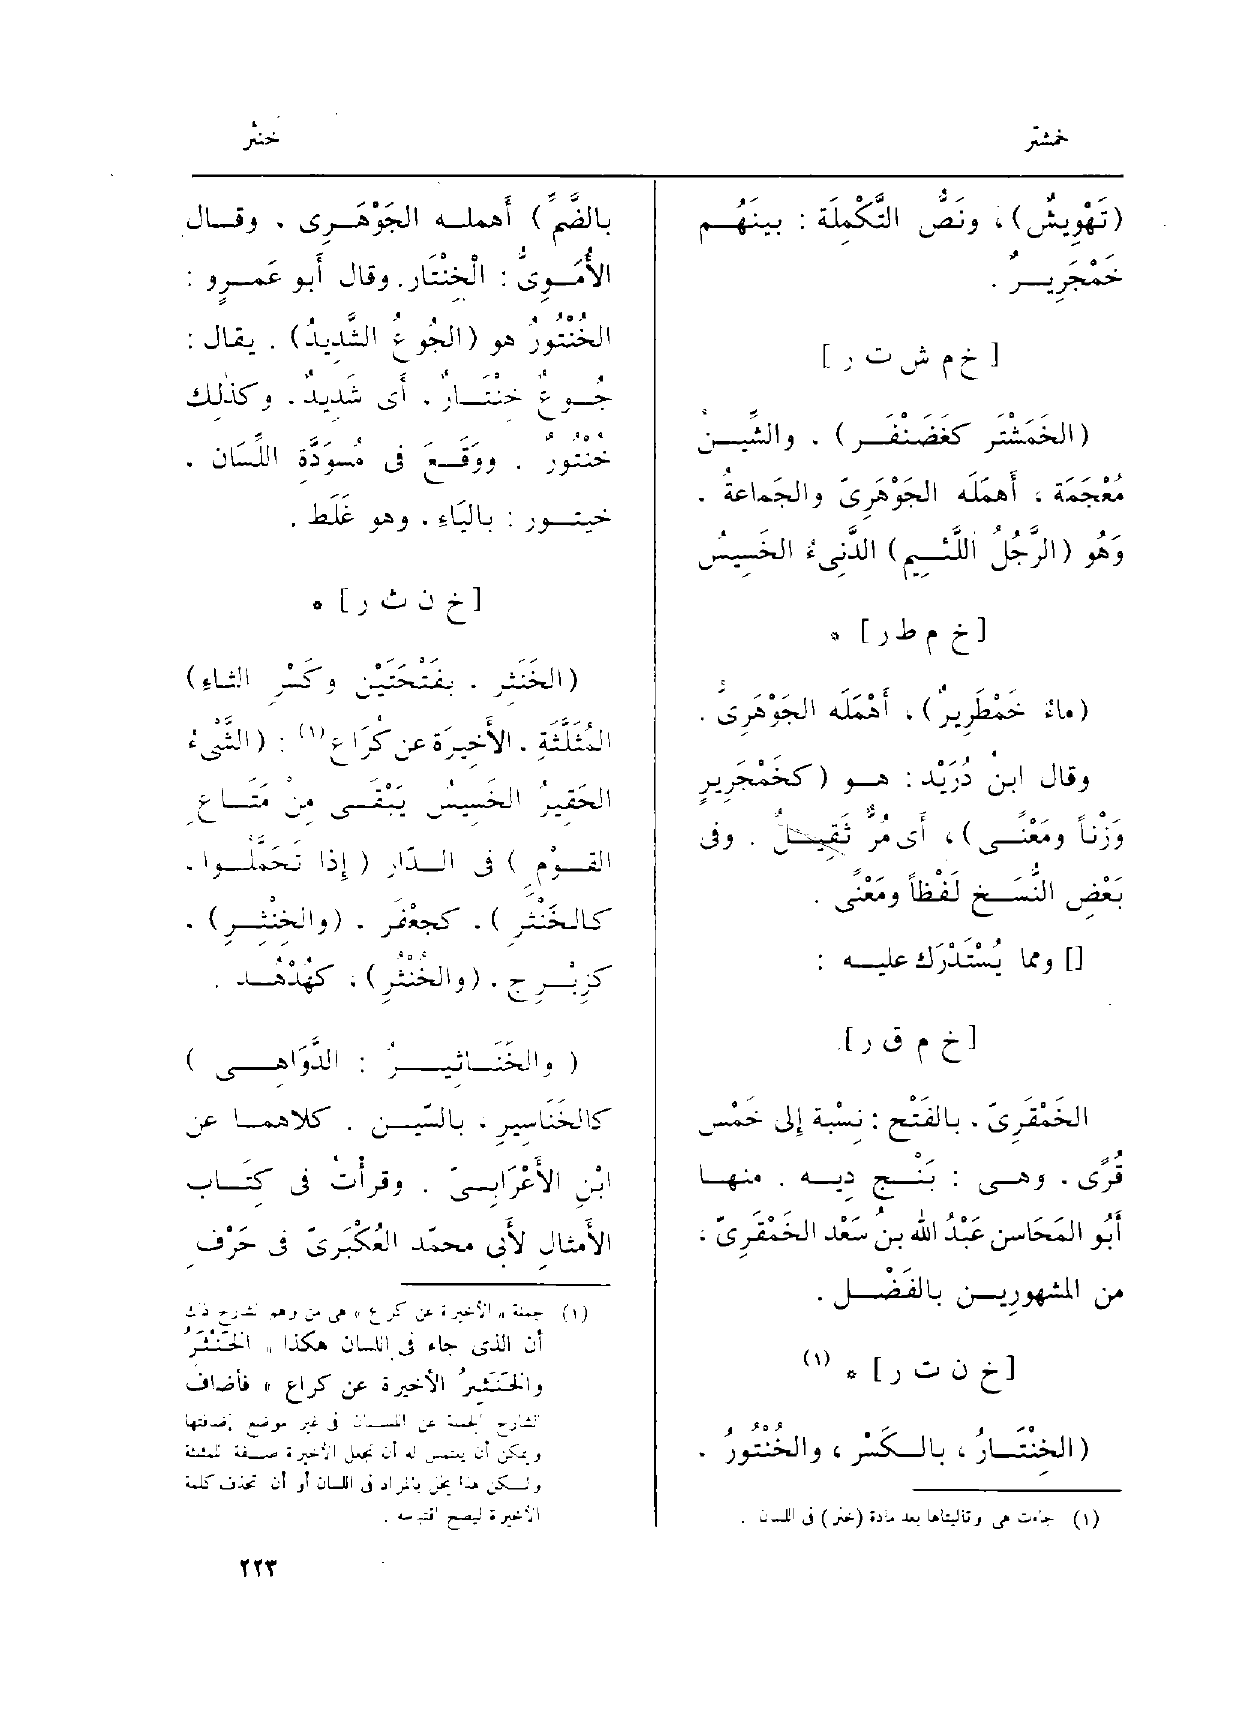 خمشتر
خنثر
(تَهْوِيشٌ)، ونَصُّ التَّكْمِلَة : بينَهُم
خَمْجَرِيرٌ .
[ خ م ش ت ر ]
(الخَمَشْتَر كغَضَنْفَر) . والشِّين
مُعْجَمَة ، أَهْمَلَه الجَوْهَرِىّ والجَماعةُ .
وَهُو (الرَّجُلُ اللَّئِيم) الدَّنِىءُ الخَسِيسُ
[ خ م ط ر ] *
(ماءٌ خَمْطَرِيرٌ) ، أَهْمَلَه الجَوْهَرِىُّ .
وقال ابنُ دُرَيْد : هو (كخَمْجَرِيرٍ
وَزْناً ومَعْنًى) ، أَى مُرٌّ ثَقِيلٌ . وفى
بَعْضِ النُّسَخ لَفْظاً ومَعْنًى .
[] ومما يُسْتَدْرَك عليه :
[ خ م ق ر ]
الخَمْقَرِىّ . بالفَتْح : نِسْبَة إلى خَمْس
قُرًى . وهى : بَنْج دِيه . منها
أَبُو المَحَاسن عَبْدُ الله بنُ سَعْد الخَمْقَرِىّ ،
من المشهورين بالفَضْل .
[ خ ن ت ر ] * (١)
(الخِنْتَارُ ، بالكَسْر ، والخُنْتُورُ .
(١) جاءت هى وتاليتاها بعد مادة (خنر) فى اللسان .
بالضَّمّ) أَهمله الجَوْهَرِى . وقال
الأُمَوِىُّ : الْخِنْتَار. وقال أَبو عَمرٍو :
الخُنْتُورُ هو (الجُوعُ الشَّدِيدُ) . يقال :
جُوعٌ خِنْتَارٌ . أَى شَدِيدٌ . وكذٰلك
خُنْتُورٌ . ووَقَع فى مُسوَدَّة اللِّسَان .
خيتور : باليَاءِ . وهو غَلَط .
[ خ ن ث ر ] *
(الخَنَثِر . بفَتْحَتَيْن وكَسْرِ الثاءِ)
المُثَلَّثَةِ . الأَخِيرَة عن كُرَاع (١) : (الشَّىءُ
الحَقِيرُ الخَسِيسُ يَبْقَى مِنْ مَتَاعِ
القَوْمِ ) فى الدَّار ( إِذا تَحَمَّلُوا .
كالخَنْثَرِ ) . كجَعْفَر . (والخِنْثِرِ) .
كزِبْرِج . (والخُنْثُرِ) ، كهُدْهُد .
( والخَنَاثِيرُ : الدَّوَاهِى )
كالخَنَاسِيرِ ، بالسِّين . كلاهما عن
ابْنِ الأَعْرَابِىّ . وقرأْتُ فى كِتَاب
الأَمثالِ لأَبى محمّد العُكْبَرِىّ فى حَرْف
(١) جملة « الأخيرة عن كراع » هى من وهم الشارح ذلك
أن الذى جاء فى اللسان هكذا « الخَنْثَرُ
والخَنَثِرُ الأخيرة عن كراع » فأضاف
الشارح الجملة عن اللسان فى غير موضع إضافتها
ويمكن أن يلتمس له أن يجعل الأخيرة صفة للمثلثة
ولكن هذا يخل بالمراد فى اللسان أو أن تحذف كلمة
الأخيرة ليصح اقتباسه .
٢٢٣